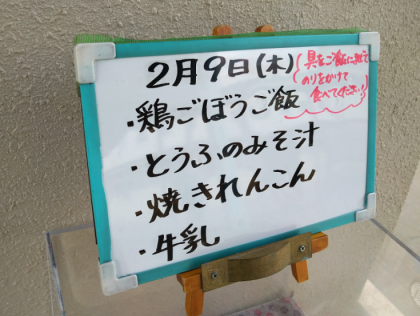 2月9日(木)
具をご飯に混ぜて
のりをかけて
食べてください!!
・鶏ごぼうご飯
・とうふのみそ汁
・焼きれんこん
・牛乳